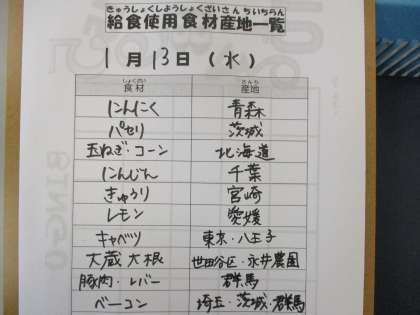 きゅうしょくしようしょくざいさんちいちらん
給食使用食材産地一覧
1月13日(水)
しょくざい さんち
食材 産地
にんにく 青森
パセリ 茨城
玉ねぎ・コーン 北海道
にんじん 千葉
きゅうり 宮崎
レモン 愛媛
キャベツ 東京・八王子
大蔵大根 世田谷区・永井農園
豚肉・レバー 群馬
ベーコン 埼玉・茨城・群馬
BINGO